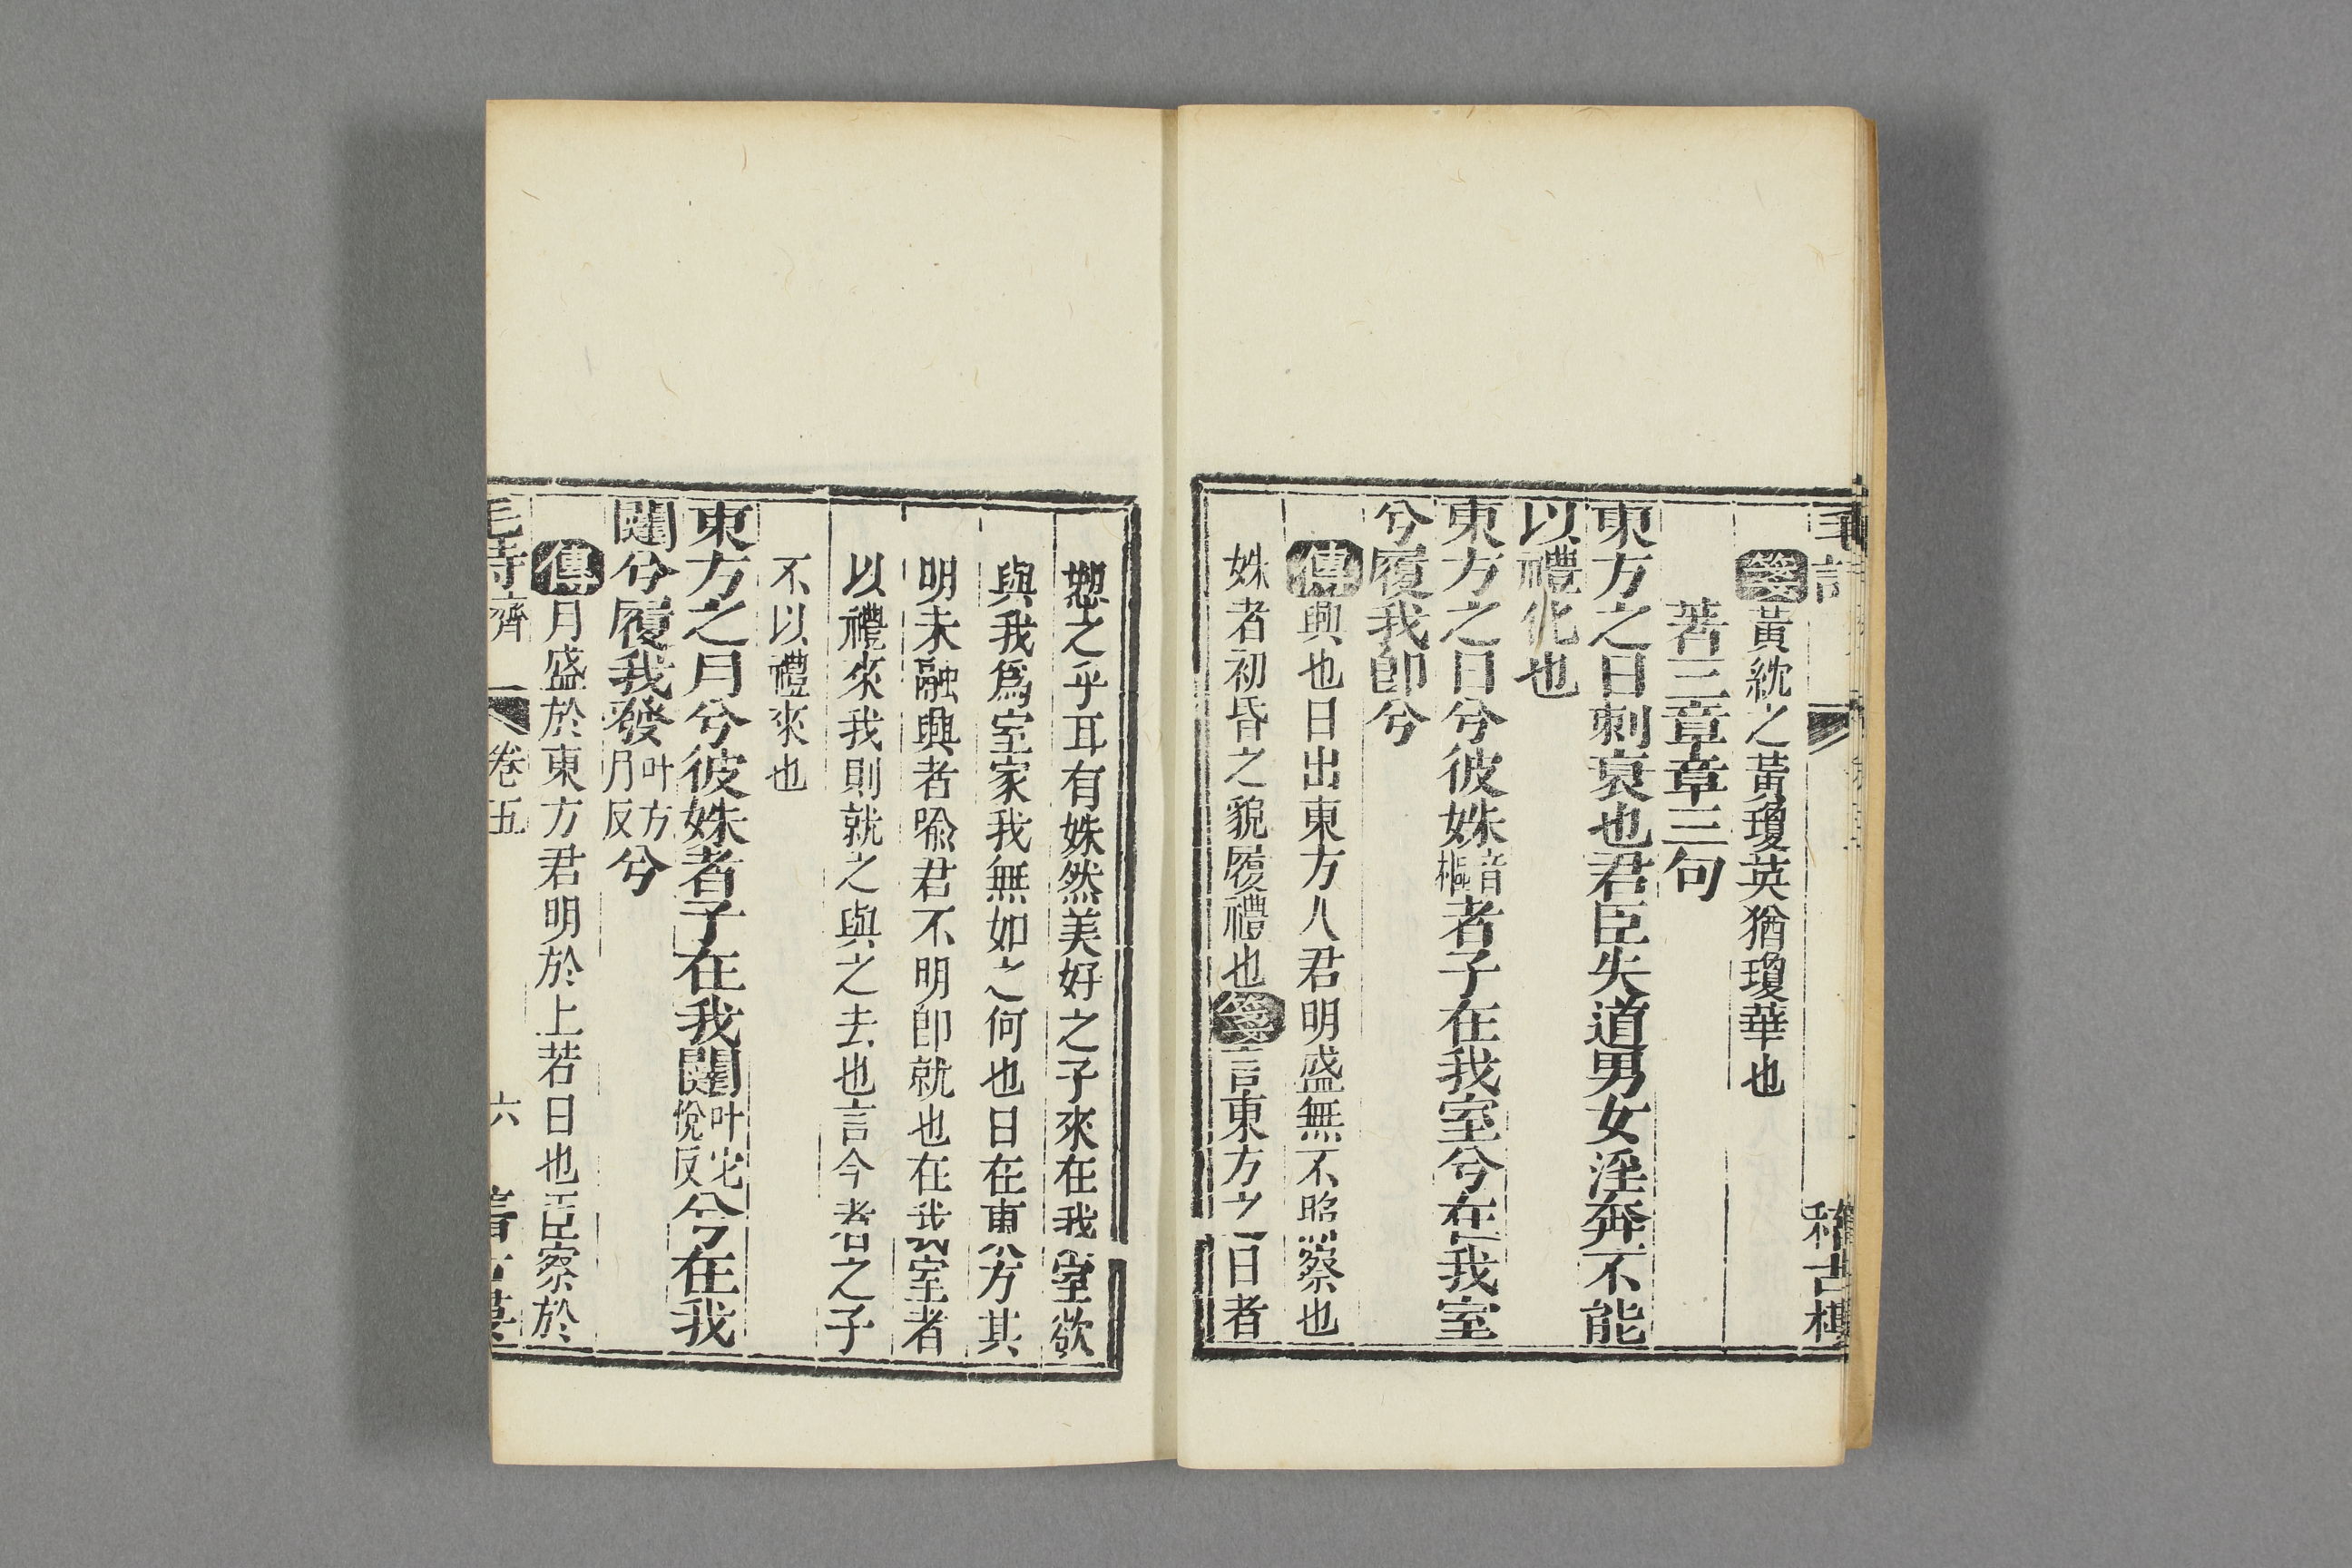 毛詩
稽古樓
箋黃紞之黃瓊英猶瓊華也
著三章章三句
東方之日刺衰也君臣失道男女淫奔不能
以禮化也
東方之日兮彼姝音樞者子在我室兮在我室
兮履我卽兮
傳興也日出東方人君明盛無不照察也
姝者初昏之貌履禮也箋言東方之日者
愬之乎耳有姝然美好之子來在我室欲
與我爲室家我無如之何也日在東方其
明未融興者喻君不明卽就也在我室者
以禮來我則就之與之去也言今者之子
不以禮來也
東方之月兮彼姝者子在我闥叶宅悅反兮在我
闥兮履我發叶方月反兮
傳月盛於東方君明於上若日也臣察於
毛詩 齊 卷五 六